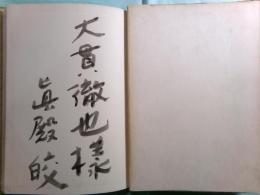 大貫徹也様
眞殿皎